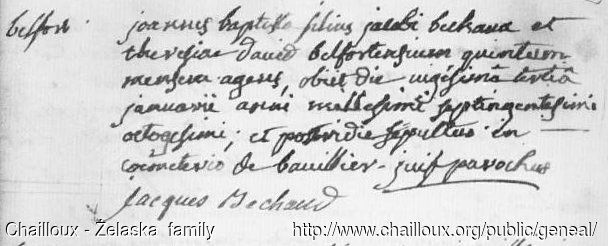 belfort. joannes baptista filius jacobi bechaud et
theresiae david belfortensium quintum
mensem agens, obiit die vigesimâ tertiâ
januarii anni millesimi septingentesimi
octogesimi; et postridie sepultus in
coemeterio de bavillier - juif parochus
Jacques Bechaud
Chailloux - Żelaska family http://www.chailloux.org/public/geneal/